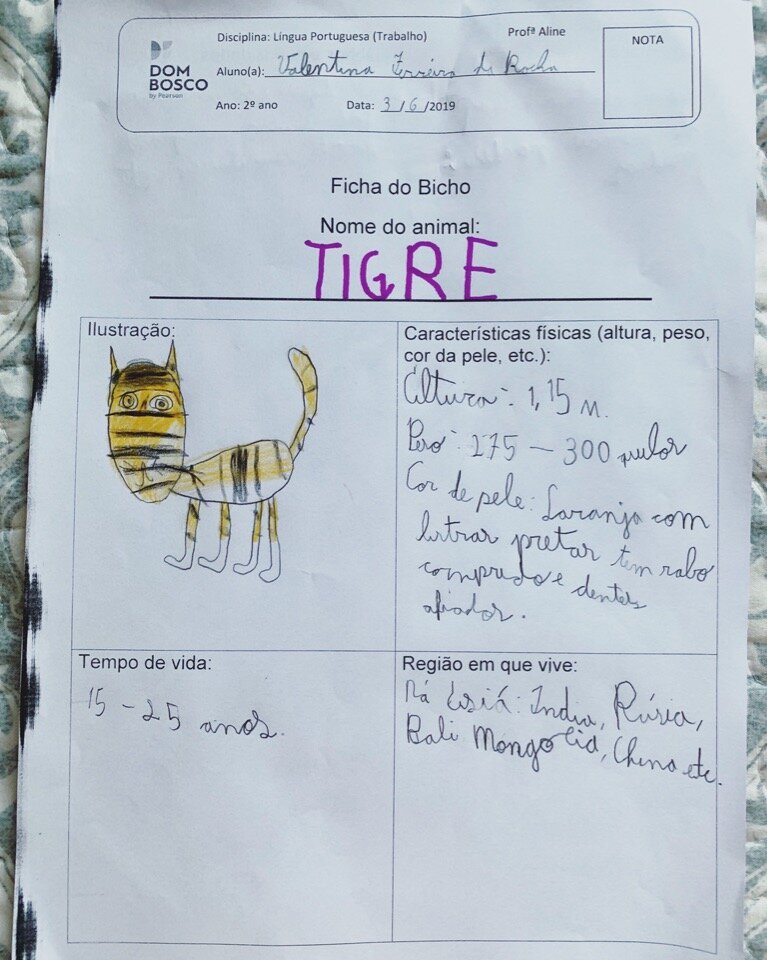 Disciplina: Língua Portuguesa (Trabalho) Profª Aline
NOTA
DOM
BOSCO
by Pearson
Aluno(a): Valentina Ferreira da Rocha
Ano: 2º ano Data: 3/6/2019
Ficha do Bicho
Nome do animal:
TIGRE
Ilustração:
Características físicas (altura, peso,
cor da pele, etc.):
Altura: 1,15 m.
Peso: 175 – 300 quilos
Cor de pele: Laranja com
listras pretas tem rabo
comprido e dentes
afiados.
Tempo de vida:
15 – 25 anos.
Região em que vive:
Na Ásia: India, Rúsia,
Bali Mongolia, China etc.